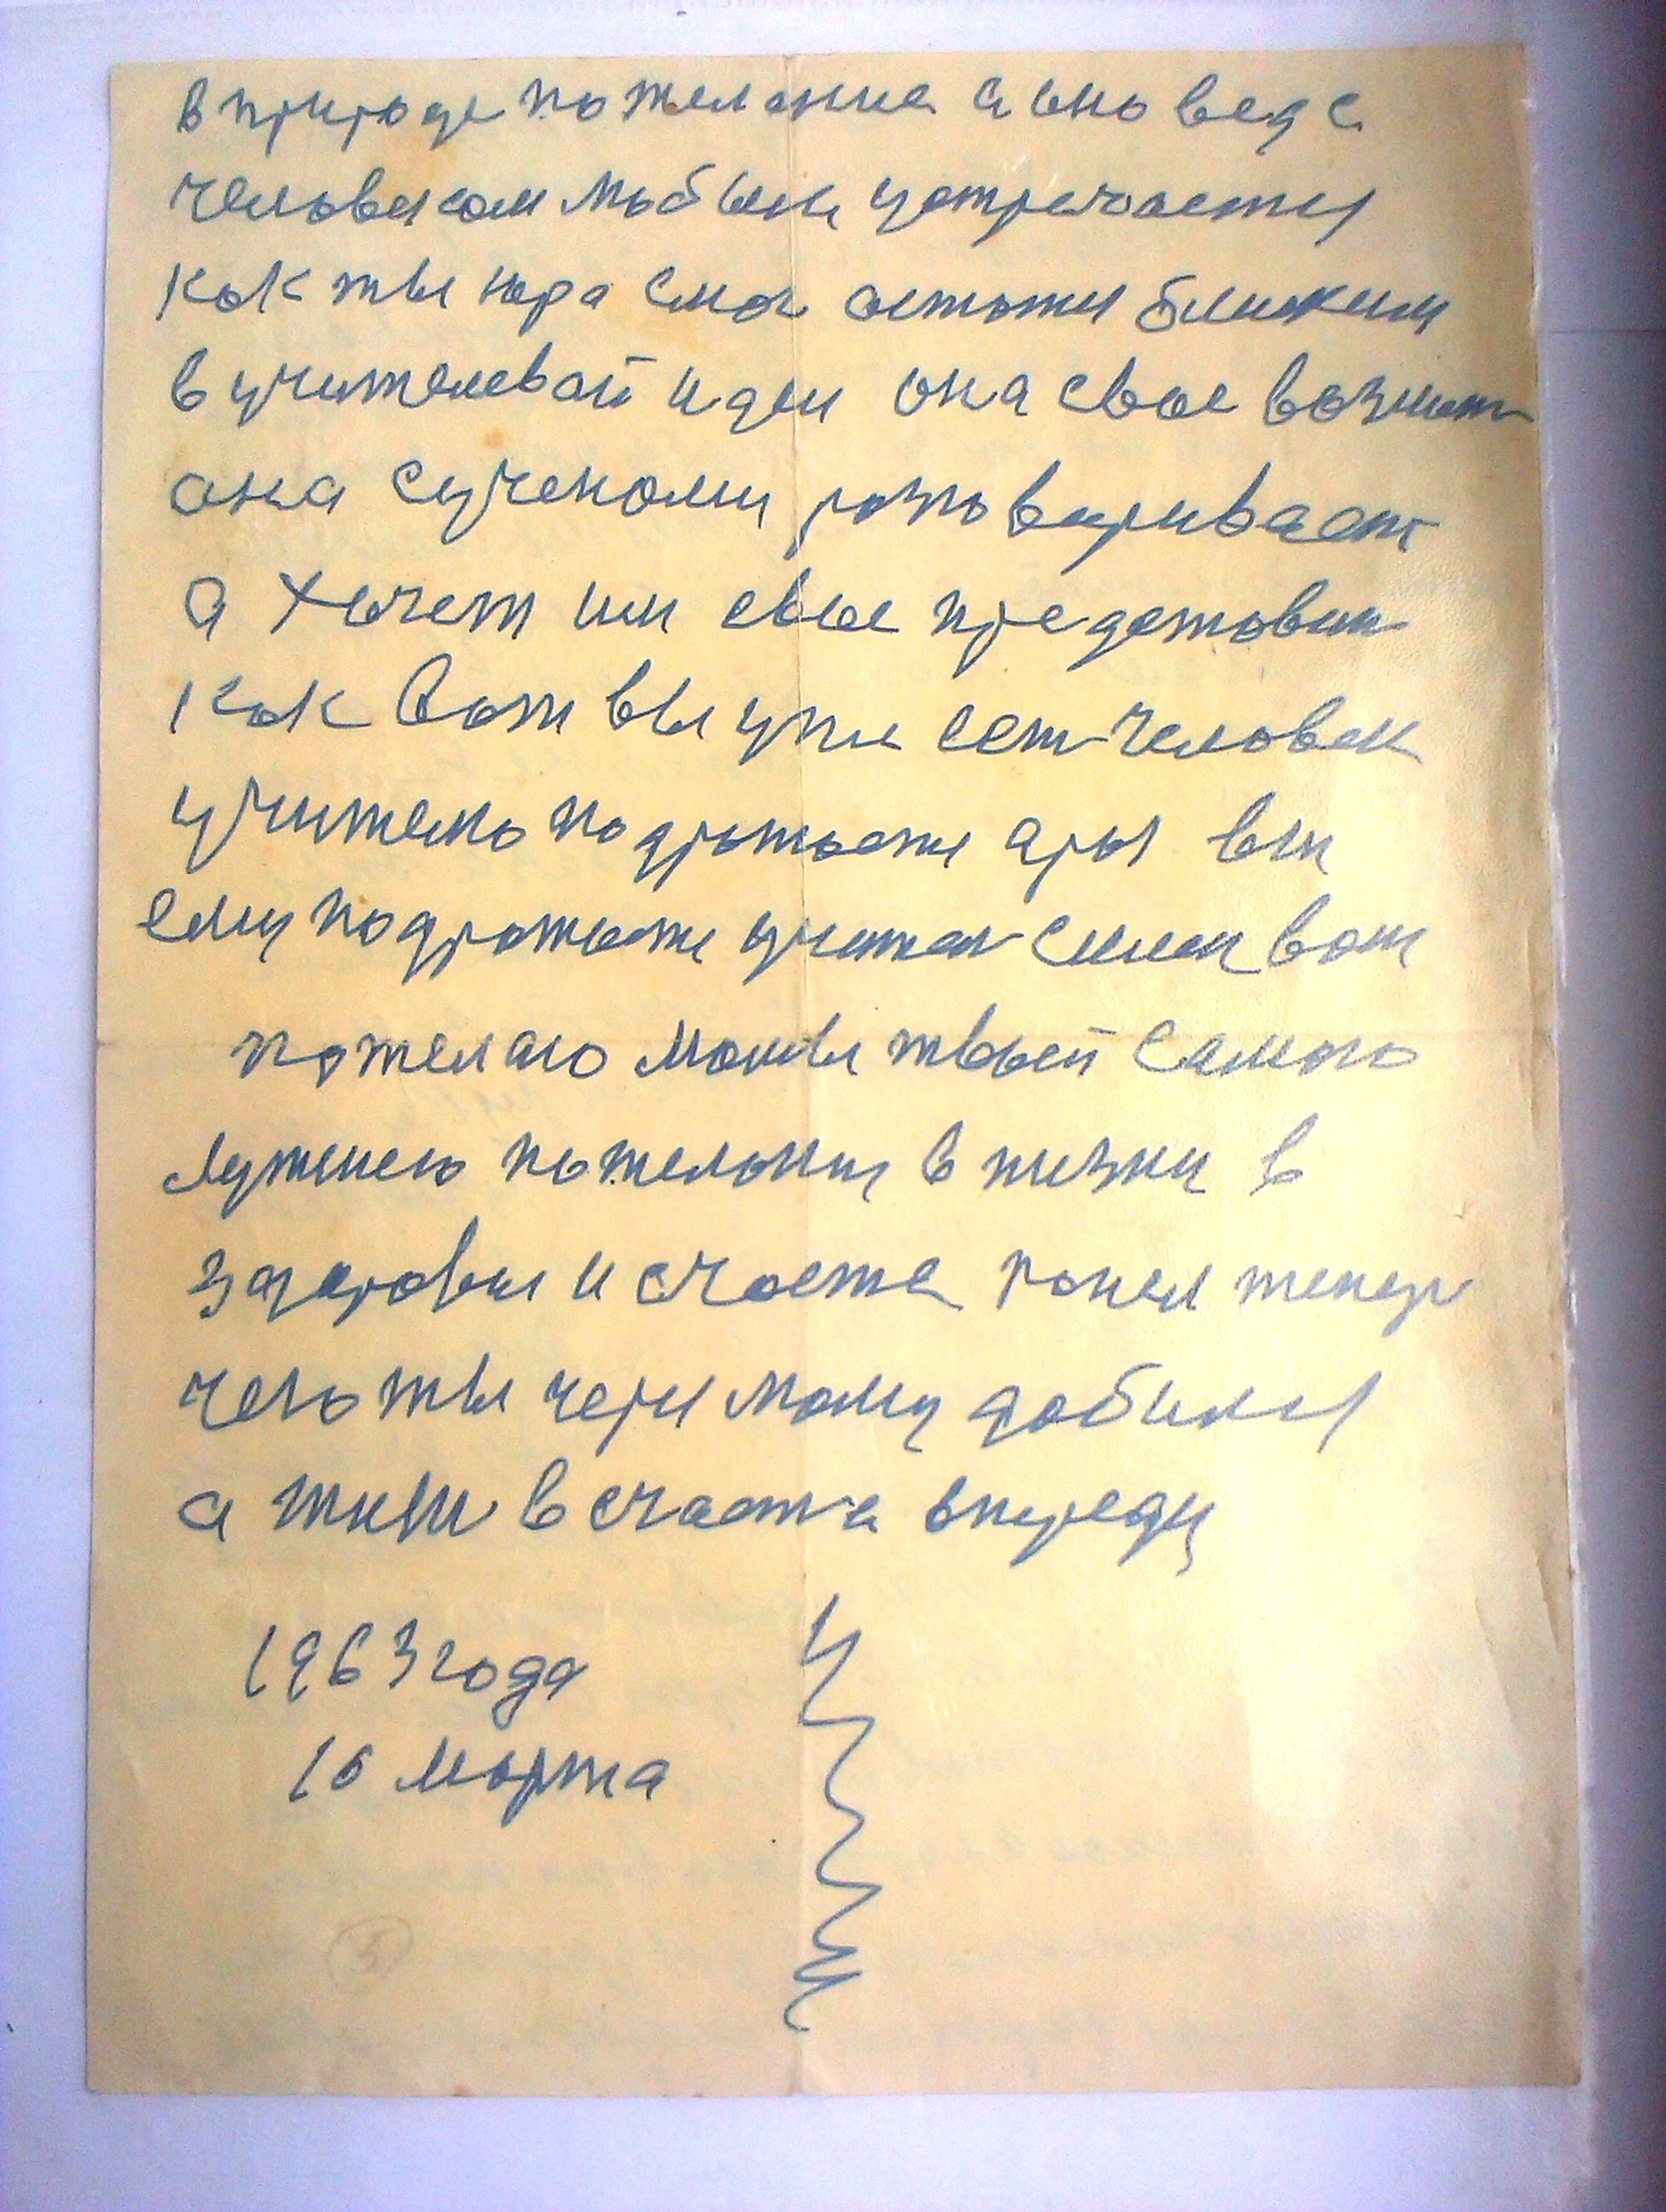 в природе пожелание а оно ведь с
человеком любым устречается
как ты юра смог остаться ближним
в учителевой идеи она свое возмет
она с учеками разговаривает
а хочет им свое предоставит
как вот вы уже ест человек
учителю подражаете а вы
ему подражаете учител вам
пожелаю мамы твоей самого
лутшего пожелания в жизни в
здаровья и счастя теперь
чего ты чери маму добился
а живи в счастя впереди
1963 года
16 марта
5